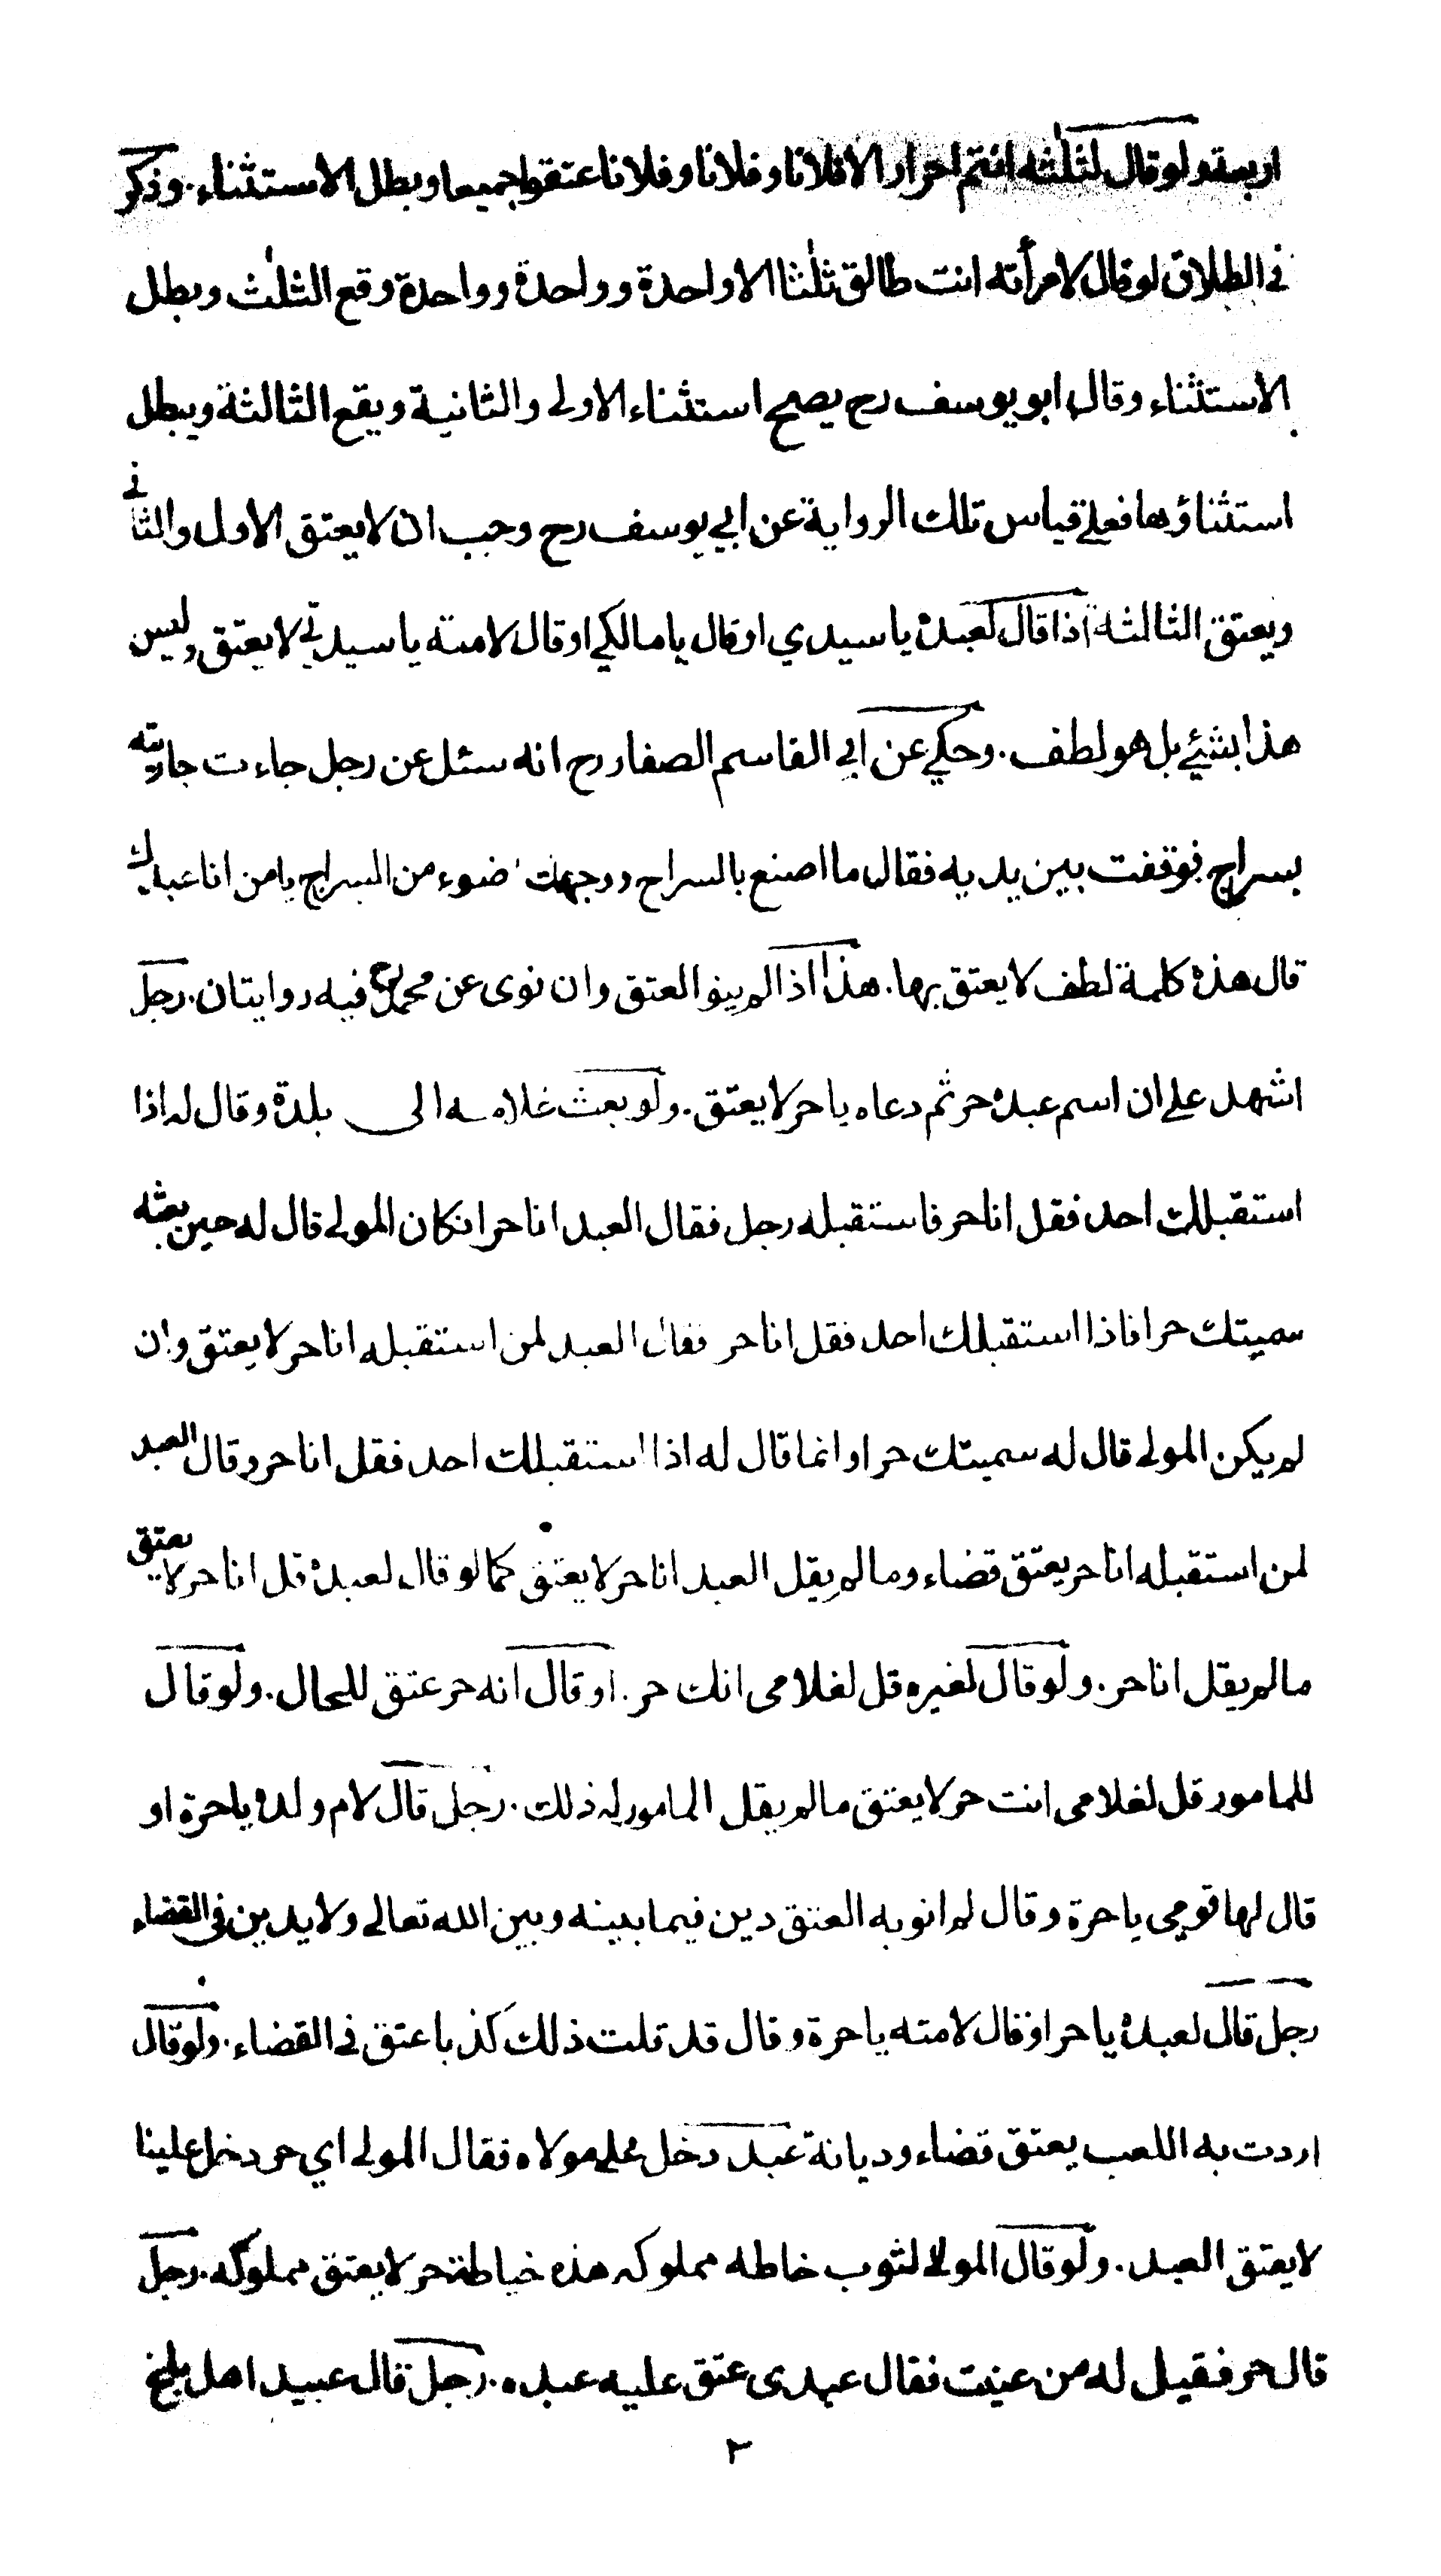 اربعة ولو قال لثلٰثه انتم احرار الا فلانا وفلانا وفلانا عتقوا جميعا وبطل الاستثناء. وذكر
في الطلاق لو قال لامرأته انت طالق ثلٰثا الا واحدة وواحدة وواحدة وقع الثلٰث وبطل
الاستثناء وقال ابو يوسف رح يصح استثناء الاولى والثانية ويقع الثالثة ويبطل
استثناؤها فعلے قياس تلك الرواية عن ابي يوسف رح وجب ان لا يعتق الاول والثاني
ويعتق الثالثة اذا قال لعبده يا سيدي او قال يا مالكي او قال لامته يا سيدتي لا يعتق وليس
هذا بشئي بل هو لطف. وحكي عن ابي القاسم الصفار رح انه سئل عن رجل جاءت جاريته
بسراج فوقفت بين يديه فقال ما اصنع بالسراج ووجهك ضوء من السراج يا من انا عبدك
قال هذه كلمة لطف لا يعتق بها. هذا اذا لم ينو العتق وان نوى عن محمد رح فيه روايتان. رجل
اشهد علے ان اسم عبده حر ثم دعاه يا حر لا يعتق. ولو بعث غلامه الى بلدة وقال له اذا
استقبلك احد فقل انا حر فاستقبله رجل فقال العبد انا حر انكان المولے قال له حين بعثه
سميتك حرا فاذا استقبلك احد فقل انا حر فقال العبد لمن استقبله انا حر لا يعتق وان
لم يكن المولے قال له سميتك حرا وانما قال له اذا استقبلك احد فقل انا حر وقال العبد
لمن استقبله انا حر يعتق قضاء وما لم يقل العبد انا حر لا يعتق كما لو قال لعبده قل انا حر لا يعتق
ما لم يقل انا حر. ولو قال لغيره قل لغلامى انك حر. او قال انه حر عتق للحال. ولو قال
للمامور قل لغلامى انت حر لا يعتق ما لم يقل المامور له ذلك. رجل قال لام ولده يا حرة او
قال لها قومي يا حرة وقال لم انو به العتق دين فيما بينه وبين الله تعالے ولا يدين في القضاء
رجل قال لعبده يا حر او قال لامته يا حرة وقال قد قلت ذلك كذبا عتق في القضاء. ولو قال
اردت به اللعب يعتق قضاء وديانة عبد دخل علے مولاه فقال المولے اي حر دخل علينا
لا يعتق العبد. ولو قال المولے لثوب خاطه مملوكه هذه خياطة حر لا يعتق مملوكه. رجل
قال حر فقيل له من عنيت فقال عبدى عتق عليه عبده. رجل قال عبيد اهل بلخ
٢